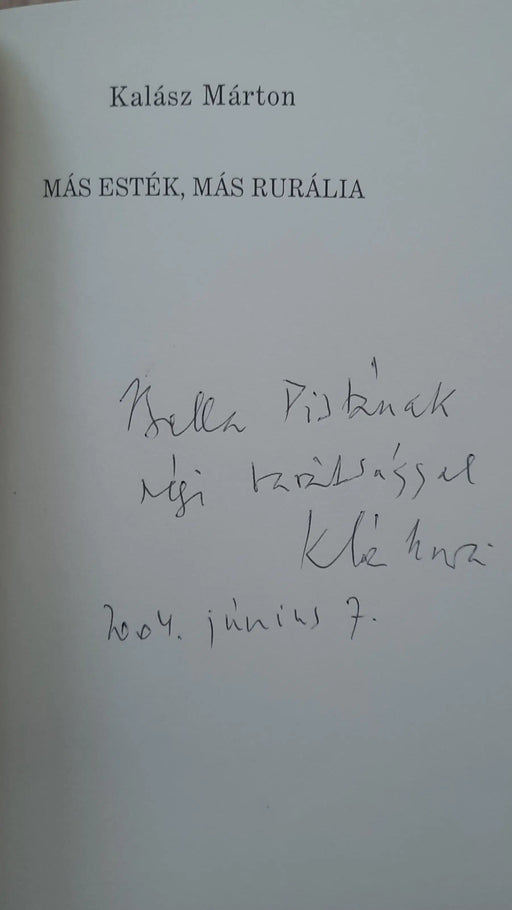 Kalász Márton
MÁS ESTÉK, MÁS RURÁLIA
Bella Pistának
régi barátsággal
2004. június 7.